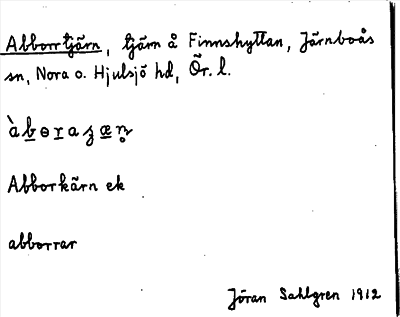 Abborrtjärn, tjärn å Finnshyttan, Järnboås
sn, Nora o. Hjulsjö hd, Ör. l.
Abborkärn ek
abborrar
Jöran Sahlgren 1912